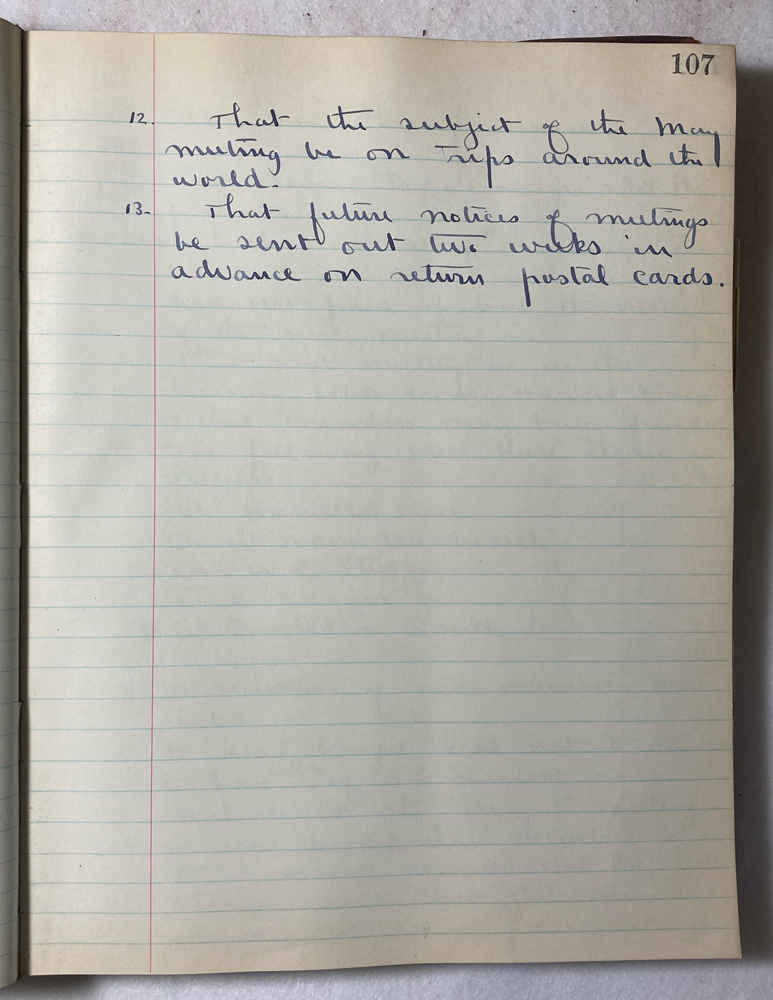 107
12. That the subject of the May
meeting be on trips around the
world.
13. That future notices of meetings
be sent out two weeks in
advance on return postal cards.